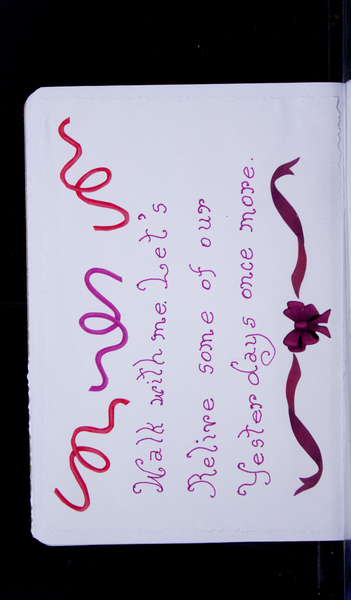 Walk with me. Let's
Relive some of our
Yester days once more.